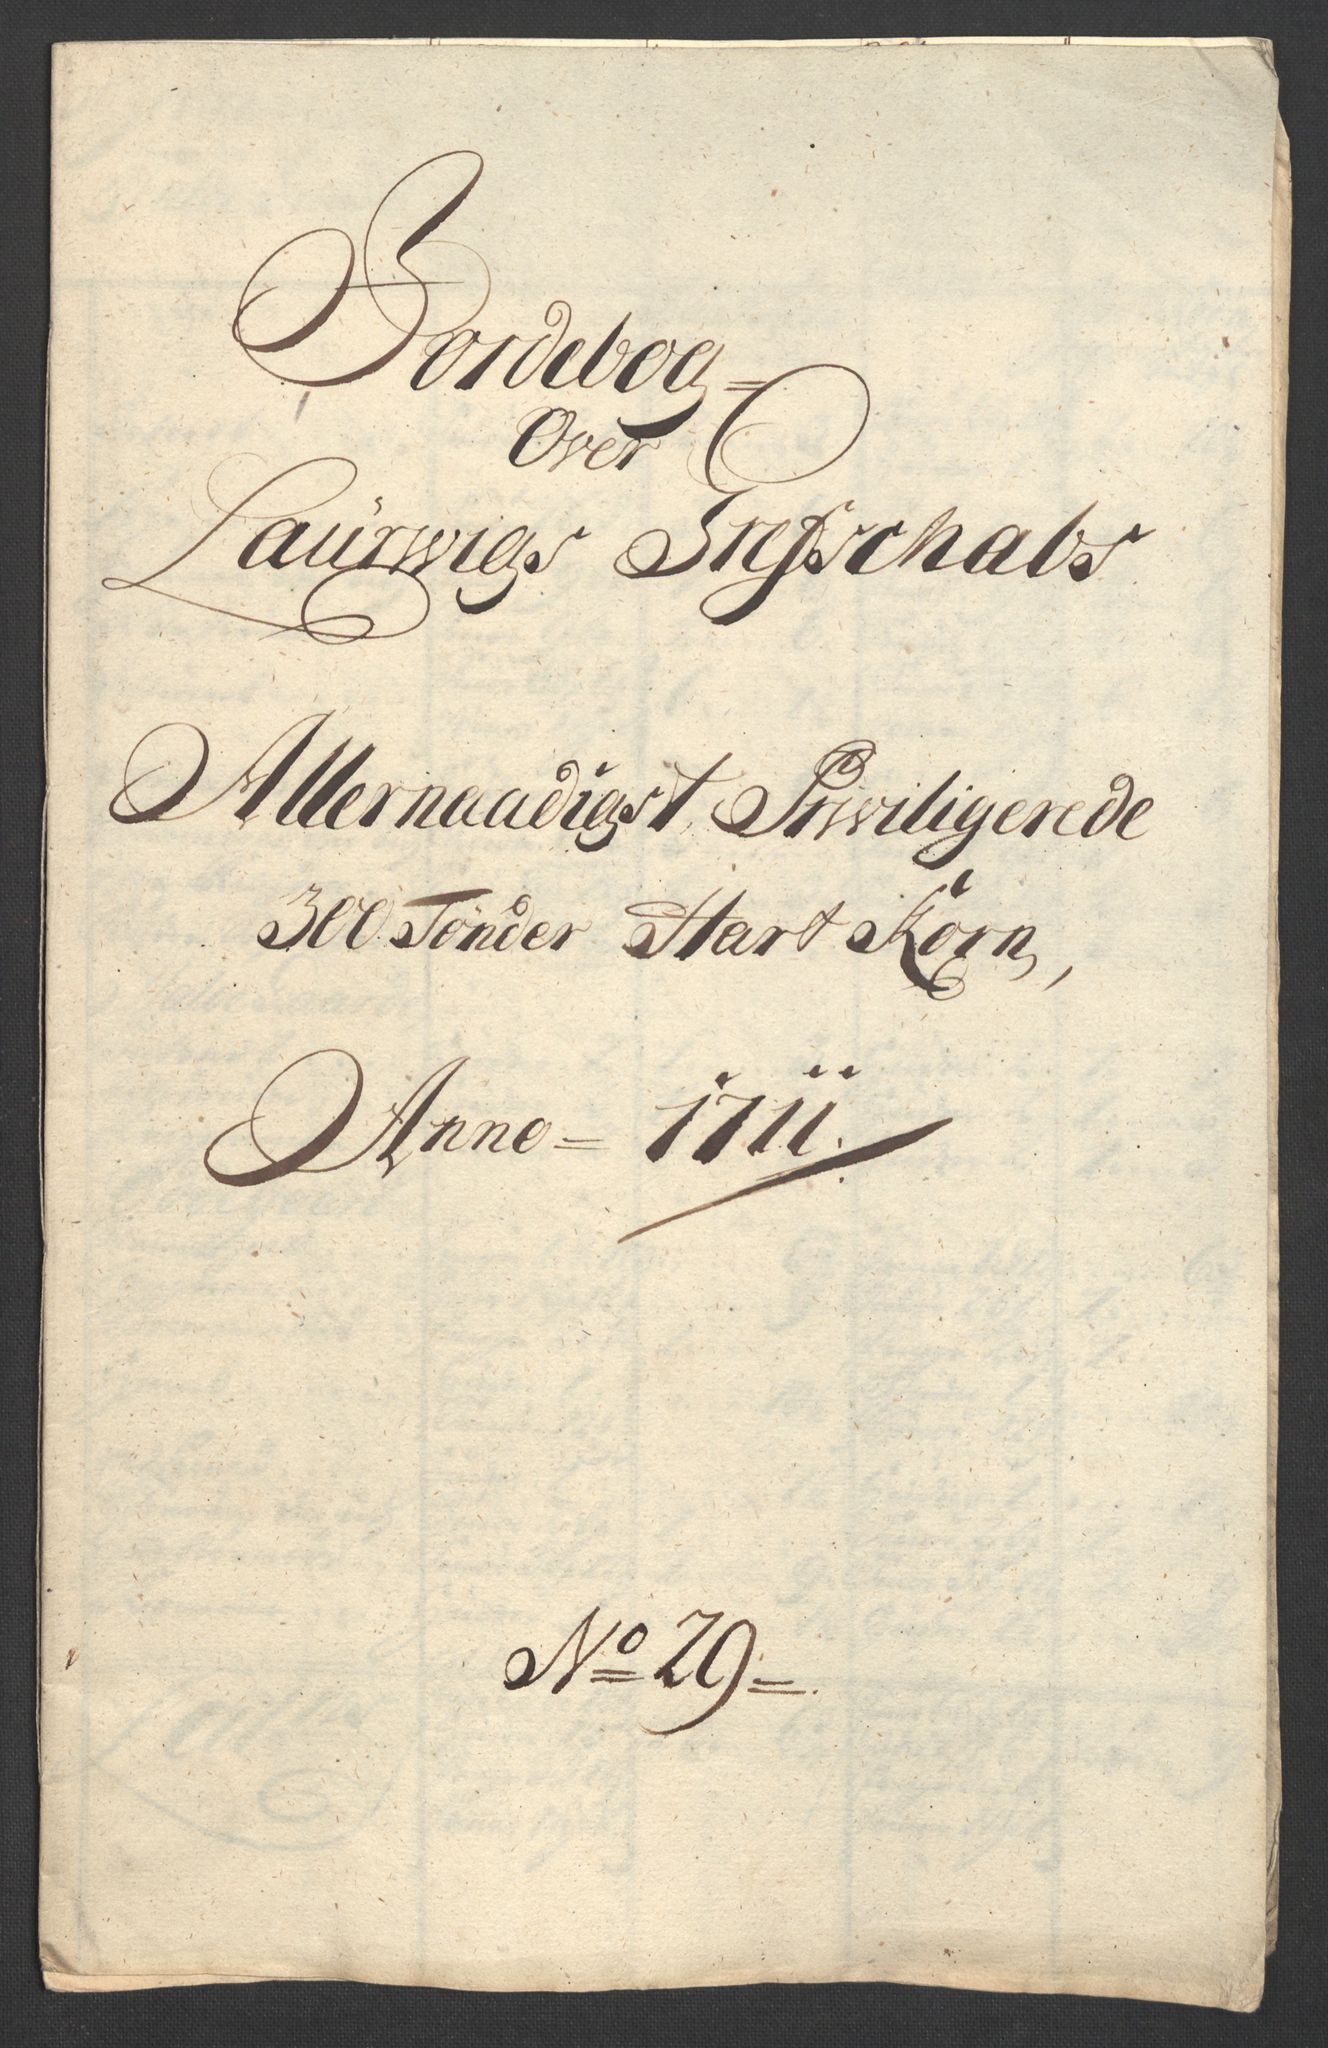 Jordebog=
Over
Laurwigs Grefschabs
Allernaadigst Priwiligerede
300 Tønder Hart Korn,
Anno= 1711.
No 29=